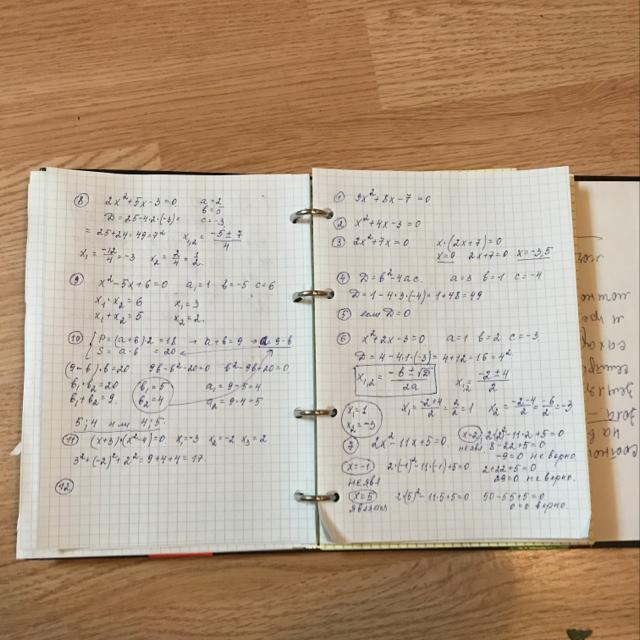 8) 2x²+5x-3=0 a=2
b=5
D=25-4·2·(-3)= c=-3
=25+24=49=7² x₁,₂ = (-5±7)/4
x₁ = -12/4 = -3 x₂ = 2/4 = 1/2
9) x²-5x+6=0 a=1 b=-5 c=6
x₁·x₂=6 x₁=3
x₁+x₂=5 x₂=2.
10) { P=(a+b)2=18 → a+b=9 → a=9-b
S=a·b =20
(9-b)·b=20 9b-b²-20=0 b²-9b+20=0
b₁b₂=20 b₁=5 a₁=9-5=4
b₁+b₂=9 b₂=4 a₂=9-4=5
5;4 или 4;5
11) (x+3)·(x²-4)=0 x₁=-3 x₂=-2 x₃=2
3²+(-2)²+2²=9+4+4=17
12)
1) 9x²+8x-7=0
2) x²+4x-3=0
3) 2x²+7x=0 x·(2x+7)=0
x=0 2x+7=0 x=-3,5
4) D=b²-4ac. a=3 b=1 c=-4
D=1-4·3·(-4)=1+48=49
5) если D=0
6) x²+2x-3=0 a=1 b=2 c=-3
D=4-4·1·(-3)=4+12=16=4²
x₁,₂ = (-b±√D)/2a x₁,₂ = (-2±4)/2
x₁=1 x₁ = (-2+4)/2 = 2/2 = 1 x₂ = (-2-4)/2 = -6/2 = -3
x₂=-3
7) 2x²-11x+5=0 x=2 2(2)²-11·2+5=0
неявл 8-22+5=0
-9=0 не верно
x=-1 2·(-1)²-11·(-1)+5=0 2+22+5=0
неявл 29=0 не верно.
x=5 2(5)²-11·5+5=0 50-55+5=0
0=0 верно